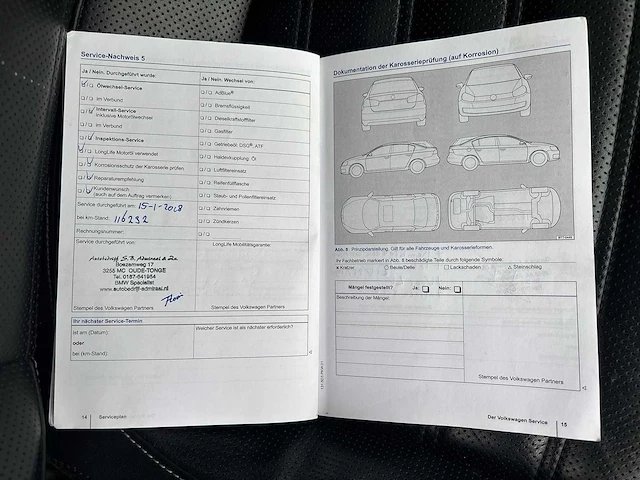 Service-Nachweis 5
Ja / Nein. Durchgeführt wurde:
Ölwechsel-Service
im Verbund
Intervall-Service
inklusive Motorölwechsel
im Verbund
Inspektions-Service
LongLife Motoröl verwendet
Korrosionsschutz der Karosserie prüfen
Reparaturempfehlung
Kundenwunsch
(auch auf dem Auftrag vermerken)
Service durchgeführt am: 15-1-2018
bei km-Stand: 116232
Rechnungsnummer:
Service durchgeführt von:
Autobedrijf S.B. Admiraal & Zn.
Boezemweg 17
3255 MC OUDE-TONGE
Tel. 0187-641984
BMW Specialist
www.autobedrijf-admiraal.nl
Stempel des Volkswagen Partners
Ja / Nein. Wechsel von:
AdBlue®
Bremsflüssigkeit
Dieselkraftstofffilter
Gasfilter
Getriebeöl: DSG®, ATF
Haldexkupplung: Öl
Luftfiltereinsatz
Reifenfüllflasche
Staub- und Pollenfiltereinsatz
Zahnriemen
Zündkerzen
LongLife Mobilitätsgarantie:
Stempel des Volkswagen Partners
Ihr nächster Service-Termin
ist am (Datum):
oder
bei (km-Stand):
Welcher Service ist als nächster erforderlich?
14 Serviceplan
Dokumentation der Karosserieprüfung (auf Korrosion)
Abb. 8 Prinzipdarstellung: Gilt für alle Fahrzeuge und Karosserieformen.
Ihr Fachbetrieb markiert in Abb. 8 beschädigte Teile durch folgende Symbole:
× Kratzer ○ Beule/Delle □ Lackschaden △ Steinschlag
Mängel festgestellt? Ja: Nein:
Beschreibung der Mängel:
Stempel des Volkswagen Partners
Der Volkswagen Service 15